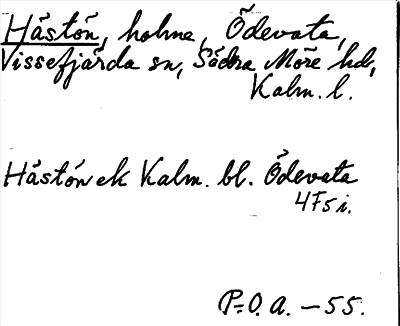 Hästön, holme, Ödevata,
Vissefjärda sn, Södra Möre hd,
Kalm. l.
Hästön ek Kalm. bl. Ödevata
4F5i.
P.O.A. – 55.